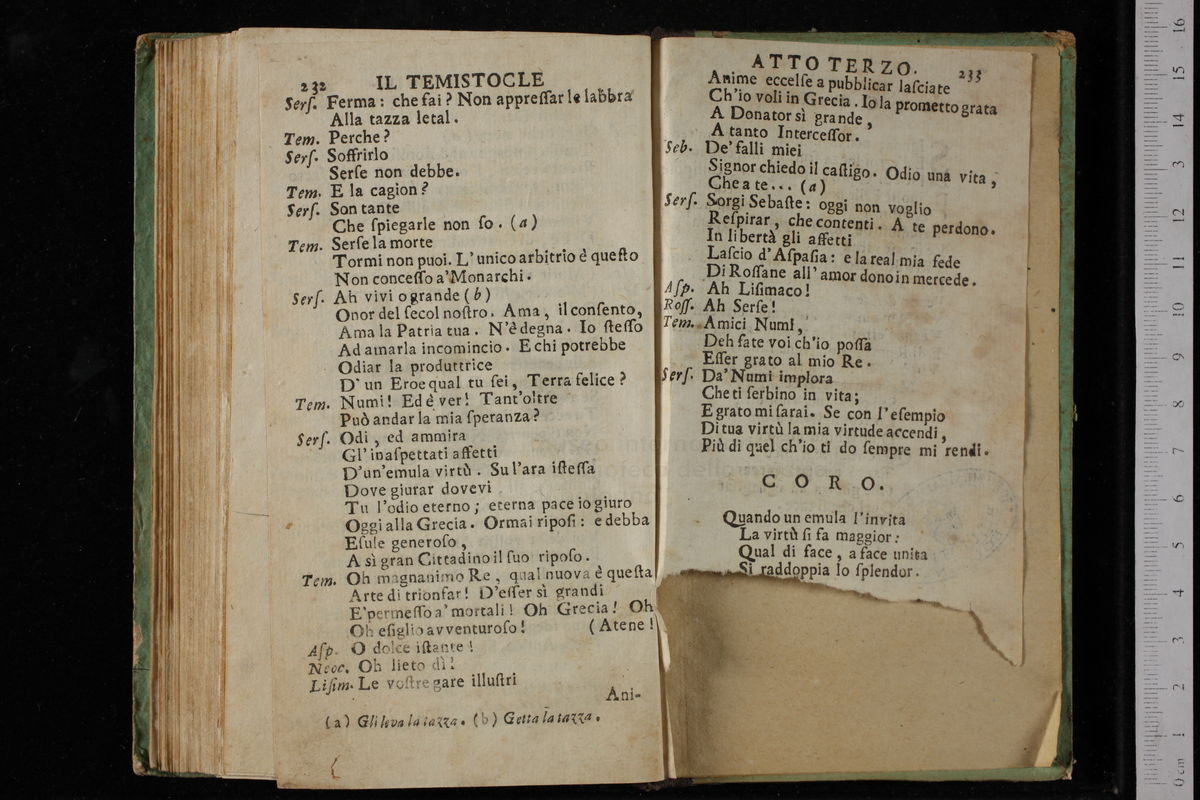 232 IL TEMISTOCLE
Serſ. Ferma : che fai ? Non appreſſar le labbra
Alla tazza letal .
Tem. Perche ?
Serſ. Soffrirlo
Serſe non debbe .
Tem. E la cagion ?
Serſ. Son tante
Che ſpiegarle non ſo . (a)
Tem. Serſe la morte
Tormi non puoi. L'unico arbitrio è queſto
Non conceſſo a' Monarchi .
Serſ. Ah vivi o grande (b)
Onor del ſecol noſtro . Ama , il conſento,
Ama la Patria tua . N'è degna . Io ſteſſo
Ad amarla incomincio . E chi potrebbe
Odiar la produttrice
D' un Eroe qual tu ſei , Terra felice ?
Tem. Numi ! Ed è ver ! Tant'oltre
Può andar la mia ſperanza ?
Serſ. Odi , ed ammira
Gl'inaſpettati affetti
D'un'emula virtù . Su l'ara iſteſſa
Dove giurar dovevi
Tu l'odio eterno ; eterna pace io giuro
Oggi alla Grecia . Ormai ripoſi : e debba
Eſule generoſo ,
A sì gran Cittadino il ſuo ripoſo .
Tem. Oh magnanimo Re , qual nuova è queſta
Arte di trionfar ! D'eſſer sì grandi
E' permeſſo a' mortali ! Oh Grecia ! Oh
Oh eſiglio avventuroſo ! ( Atene !
Aſp. O dolce iſtante !
Neoc. Oh lieto dì !
Liſim. Le voſtre gare illuſtri
Ani-
(a) Gli leva la tazza . (b) Getta la tazza .
ATTO TERZO. 233
Anime eccelſe a pubblicar laſciate
Ch'io voli in Grecia . Io la prometto grata
A Donator sì grande ,
A tanto Interceſſor .
Seb. De' falli miei
Signor chiedo il caſtigo . Odio una vita ,
Che a te... (a)
Serſ. Sorgi Sebaſte : oggi non voglio
Reſpirar , che contenti . A te perdono .
In libertà gli affetti
Laſcio d'Aſpaſia : e la real mia fede
Di Roſſane all' amor dono in mercede .
Aſp. Ah Liſimaco !
Roſſ. Ah Serſe !
Tem. Amici Numi ,
Deh fate voi ch'io poſſa
Eſſer grato al mio Re .
Serſ. Da' Numi implora
Che ti ſerbino in vita ;
E grato mi ſarai . Se con l'eſempio
Di tua virtù la mia virtude accendi ,
Più di quel ch'io ti do ſempre mi rendi .
CORO.
Quando un emula l'invita
La virtù ſi fa maggior :
Qual di face , a face unita
Si raddoppia lo ſplendor .
0 cm 1 2 3 4 5 6 7 8 9 10 11 12 13 14 15 16